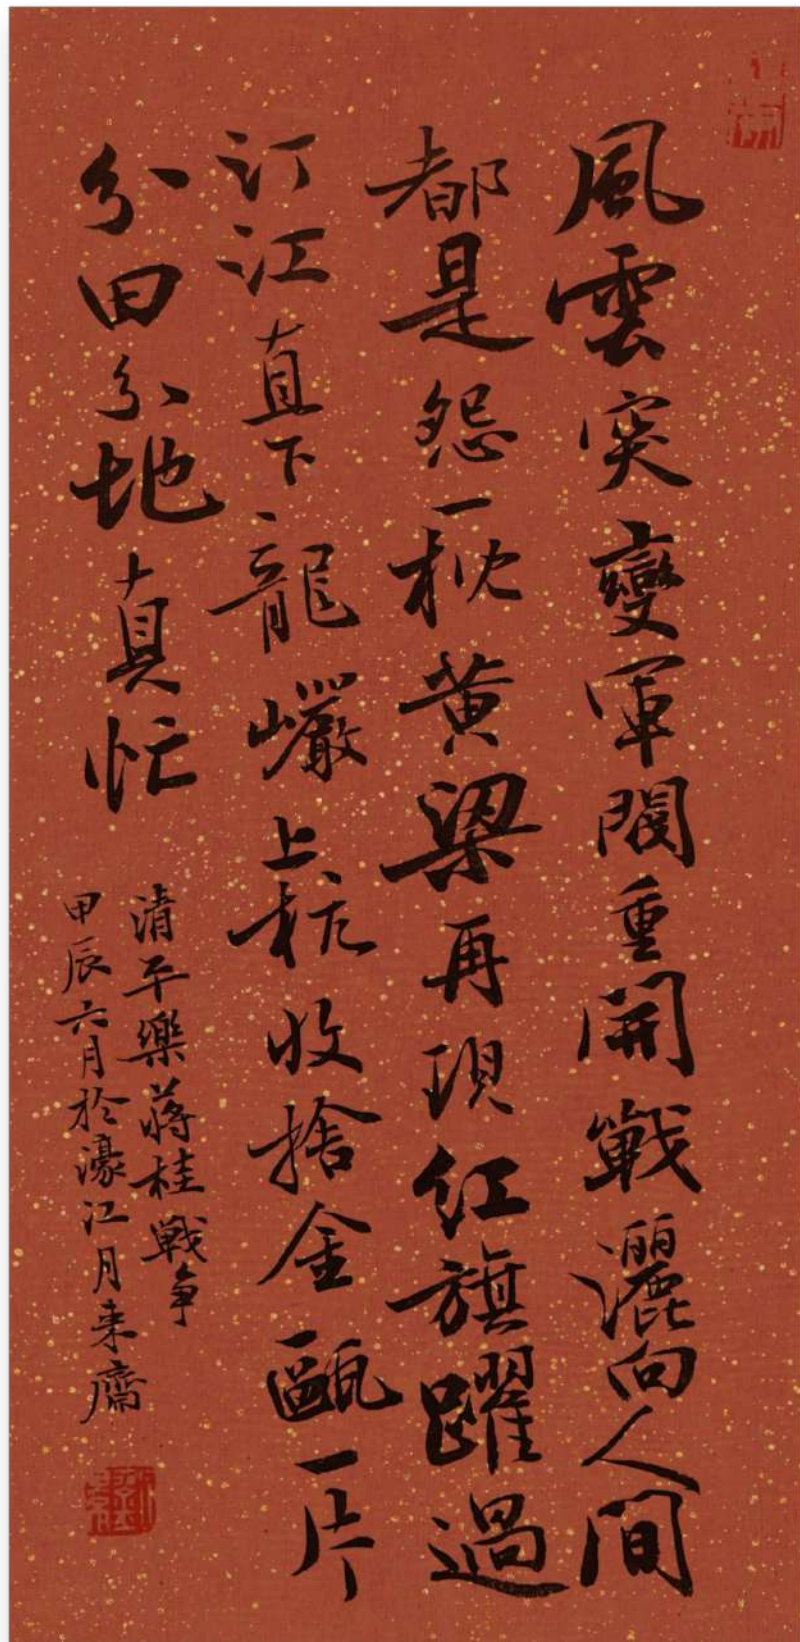 風雲突變軍閥重開戰灑向人間
都是怨一枕黄粱再現红旗躍過
汀江直下龍巗上杭收捨金甌一片
分田分地真忙
清平樂蔣桂戰争
甲辰六月於濠江月来齋